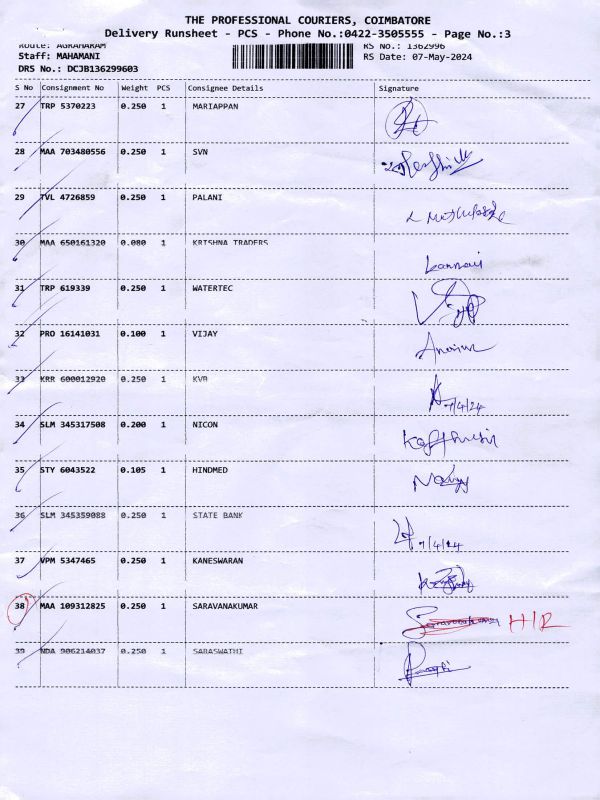 THE PROFESSIONAL COURIERS, COIMBATORE
Delivery Runsheet - PCS - Phone No.:0422-3505555 - Page No.:3
Route: AGRAHARAM RS No.: 1362996
Staff: MAHAMANI RS Date: 07-May-2024
DRS No.: DCJB136299603
S No Consignment No Weight PCS Consignee Details Signature
27 TRP 5370223 0.250 1 MARIAPPAN
28 MAA 703480556 0.250 1 SVN
29 TVL 4726859 0.250 1 PALANI
30 MAA 650161320 0.080 1 KRISHNA TRADERS
31 TRP 619339 0.250 1 WATERTEC
32 PRO 16141031 0.100 1 VIJAY
33 KRR 600012920 0.250 1 KVB
7/4/24
34 SLM 345317508 0.200 1 NICON
35 STY 6043522 0.105 1 HINDMED
36 SLM 345359088 0.250 1 STATE BANK
7/4/24
37 VPM 5347465 0.250 1 KANESWARAN
38 MAA 109312825 0.250 1 SARAVANAKUMAR H/R
39 NDA 906214037 0.250 1 SARASWATHI